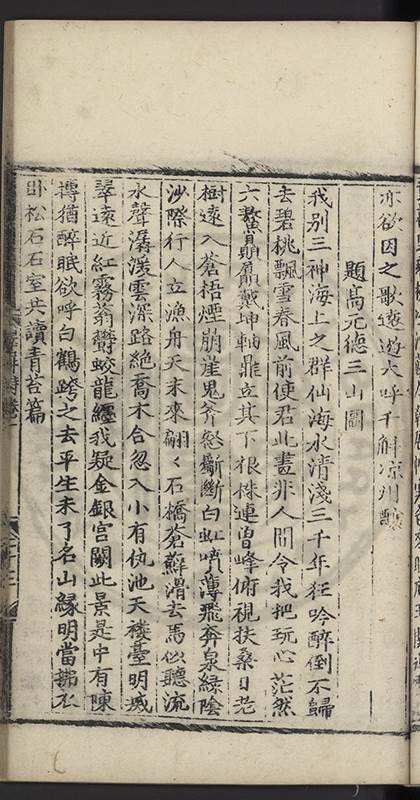 亦欲因之歌遠遊大呼千斛涼州
題高元德三山圖
我別三神海上之群仙海水清淺三千年狂吟醉倒不歸
去碧桃飄雪春風前使君此畫非人間令我把玩心茫然
六鰲贔屭戴坤軸鼎立其下根株連曾峰俯視扶桑日老
樹遠入蒼梧煙崩崖鬼斧怒斷白虹噴薄飛奔泉綠陰
沙際行人立漁舟天末來翩々石橋蒼蘚滑去馬似聽流
水聲潺湲雲深路絕喬木合忽入小有仇池天樓臺明滅
翠遠近紅霧蓊鬱蛟龍纏我疑金銀宮闕此景是中有陳
摶猶醉眠欲呼白鶴跨之去平生未了名山緣明當拂衣
臥松石石室共讀青苔篇